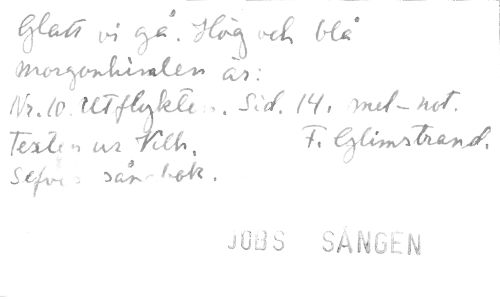 Glatt vi gå. Hög och blå
morgonhimlen är:
Nr. 10. Utflykten. Sid. 14. mel-not.
Texten ur Vilh. F. Glimstrand.
Sefves sångbok.
JOBS SÅNGEN